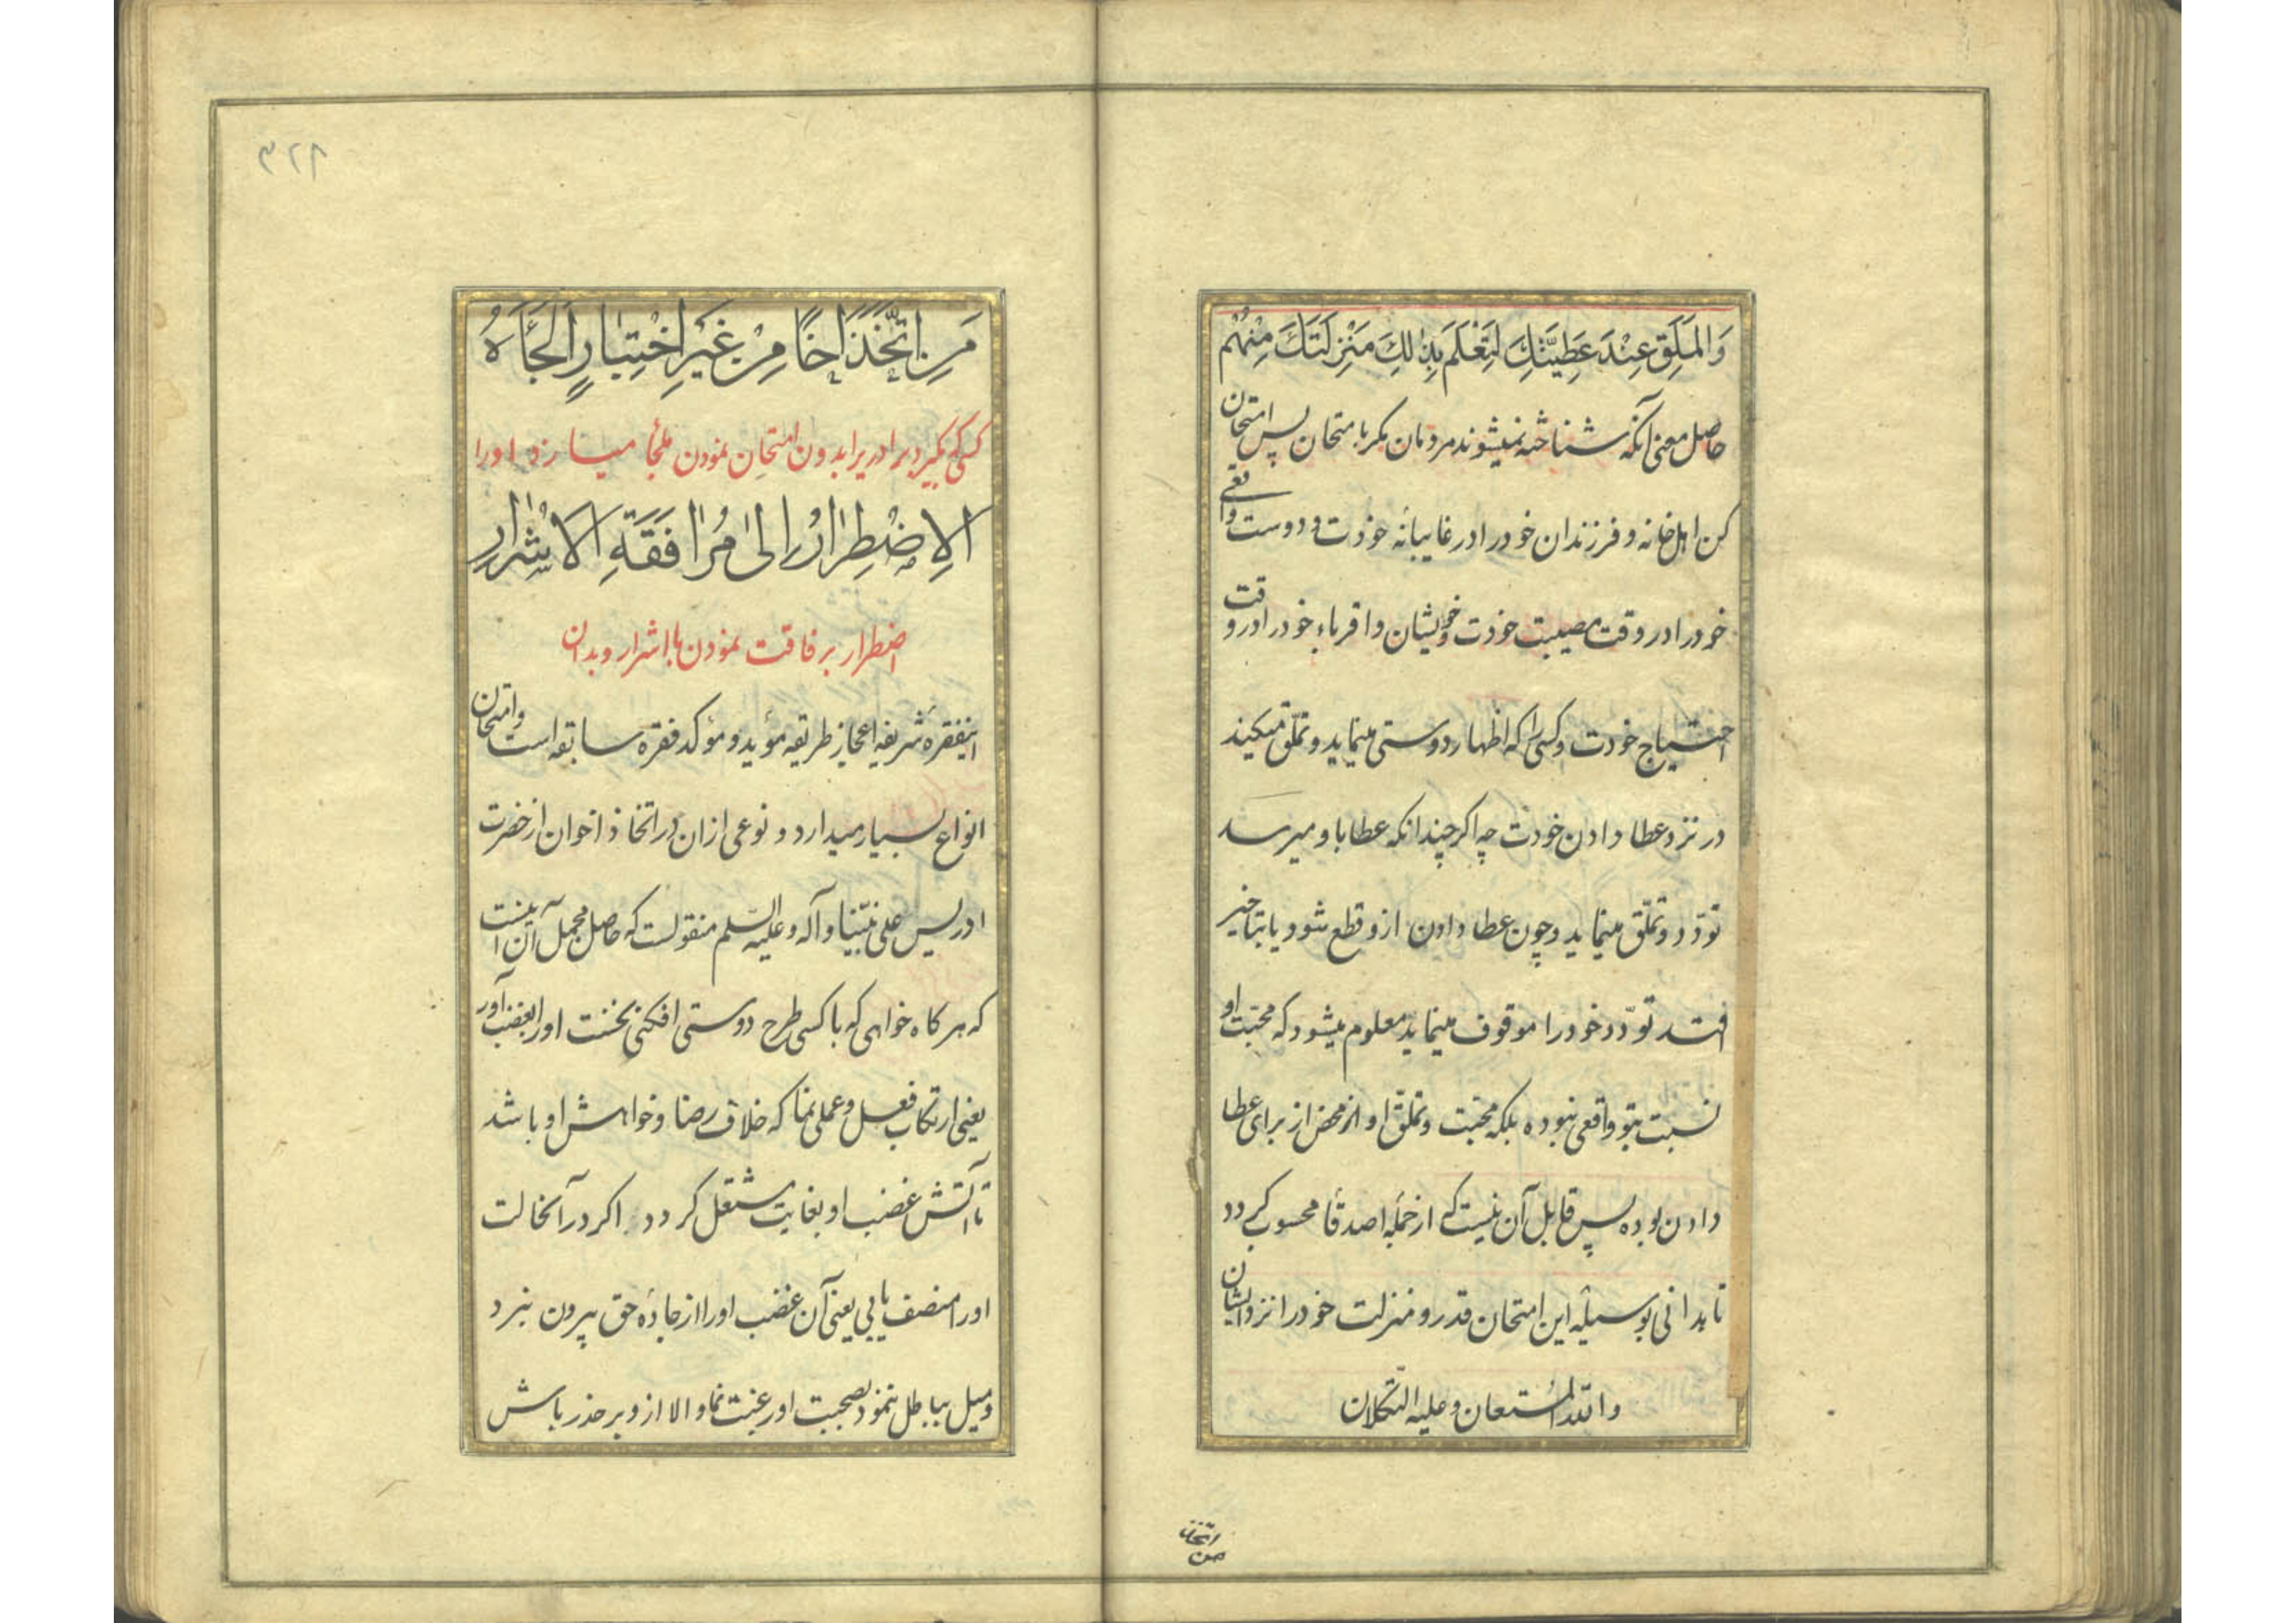 وَالمَلَقِ عِنْدَ عَطِیَّتِكَ لِتَعْلَمَ بِذٰلِكَ مَنْزِلَتَكَ مِنْهُمْ
حاصل معنی آنکه شناخته نمیشوند مردمان مکر بامتحان پس امتحان
کن اهل خانه و فرزندان خود را در غایبانه خودت و دوست واقعی
خود را در وقت مصیبت خودت و خویشان و اقرباء خود را در وقت
احتیاج خودت و کسی را که اظهار دوستی مینماید و تملّق میکیند
در نزد عطا دادن خودت چه اکر چندانکه عطا باو میرسد
تودّد و تملّق مینماید و چون عطا دادن ازو قطع شود یا بتأخیر
افتد تودّد خود را موقوف مینماید معلوم میشود که محبّت او
نسبت بتو واقعی نبوده بلکه محبّت و تملّق او از محض از برای عطا
دادن بوده پس قابل آن نیست که از جمله اصدقا محسوب کردد
تا بدانی بوسیلهٔ این امتحان قدر و منزلت خود را نزد ایشان
والله المستعان وعلیه التکلان
من اتخذ
۳۲۹
مَنِ اتَّخَذَ اَخًا مِنْ غَیْرِ اخْتِبَارٍ اَلْجَأَهُ
کسی که بکیرد برادر یرا بدون امتحان نمودن ملجأ میسازد او را
اَلاِضْطِرَارُ اِلیٰ مُرَافَقَةِ الاَشْرَارِ
اضطرار بر فاقت نمودن با اشرار و بدان
اینفقره شریفه اعجاز طریقه مؤید و مؤکد فقره سابقه است و امتحان
انواع بسیار میدارد و نوعی ازان در اتخاذ اخوان از حضرت
ادریس علی نبیّنا و آله و علیه السّلم منقولست که حاصل مجمل آن اینست
که هر کاه خواهی که با کسی طرح دوستی افکنی نخست او را بغضب آور
یعنی ارتکاب فعل و عملی نما که خلاف رضا و خواهش او باشد
تا آتش غضب او بغایت مشتعل کردد اکر در آنحالت
او را منصف یابی یعنی آن غضب او را از جادهٔ حق بیرون نبرد
و میل بباطل ننمود بصحبت او رغبت نما و الا ازو بر حذر باش